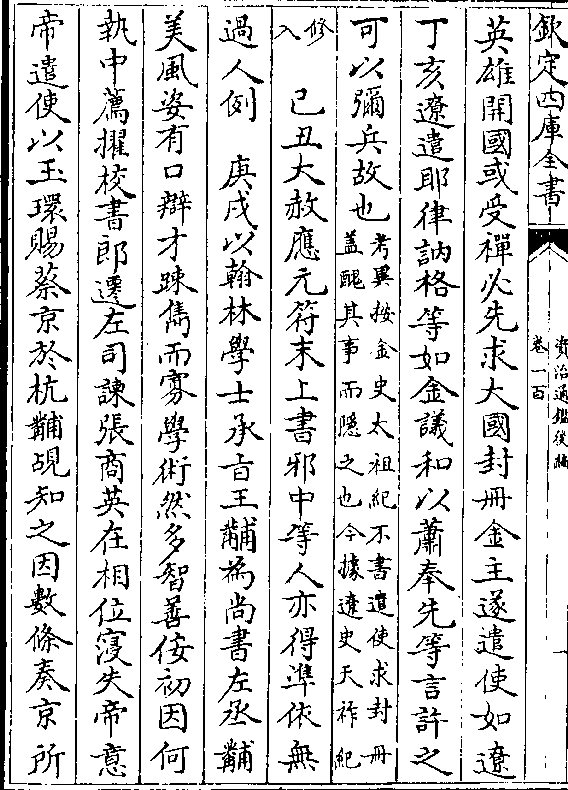 欽定四庫全書
資治通鑑後編
卷一百
一
英雄開國或受禪必先求大國封冊金主遂遣使如遼
丁亥遼遣耶律訥格等如金議和以蕭奉先等言許之
可以彌兵故也考異按金史太祖紀不書遣使求封冊
蓋醜其事而隱之也今據遼史天祚紀
修
入 己丑大赦應元符末上書邪中等人亦得準依無
過人例 庚戌以翰林學士承旨王黼為尚書左丞黼
美風姿有口辯才踈雋而寡學術然多智善佞初因何
執中薦擢校書郎遷左司諫張商英在相位寖失帝意
帝遣使以玉環賜蔡京於杭黼覘知之因數條奏京所